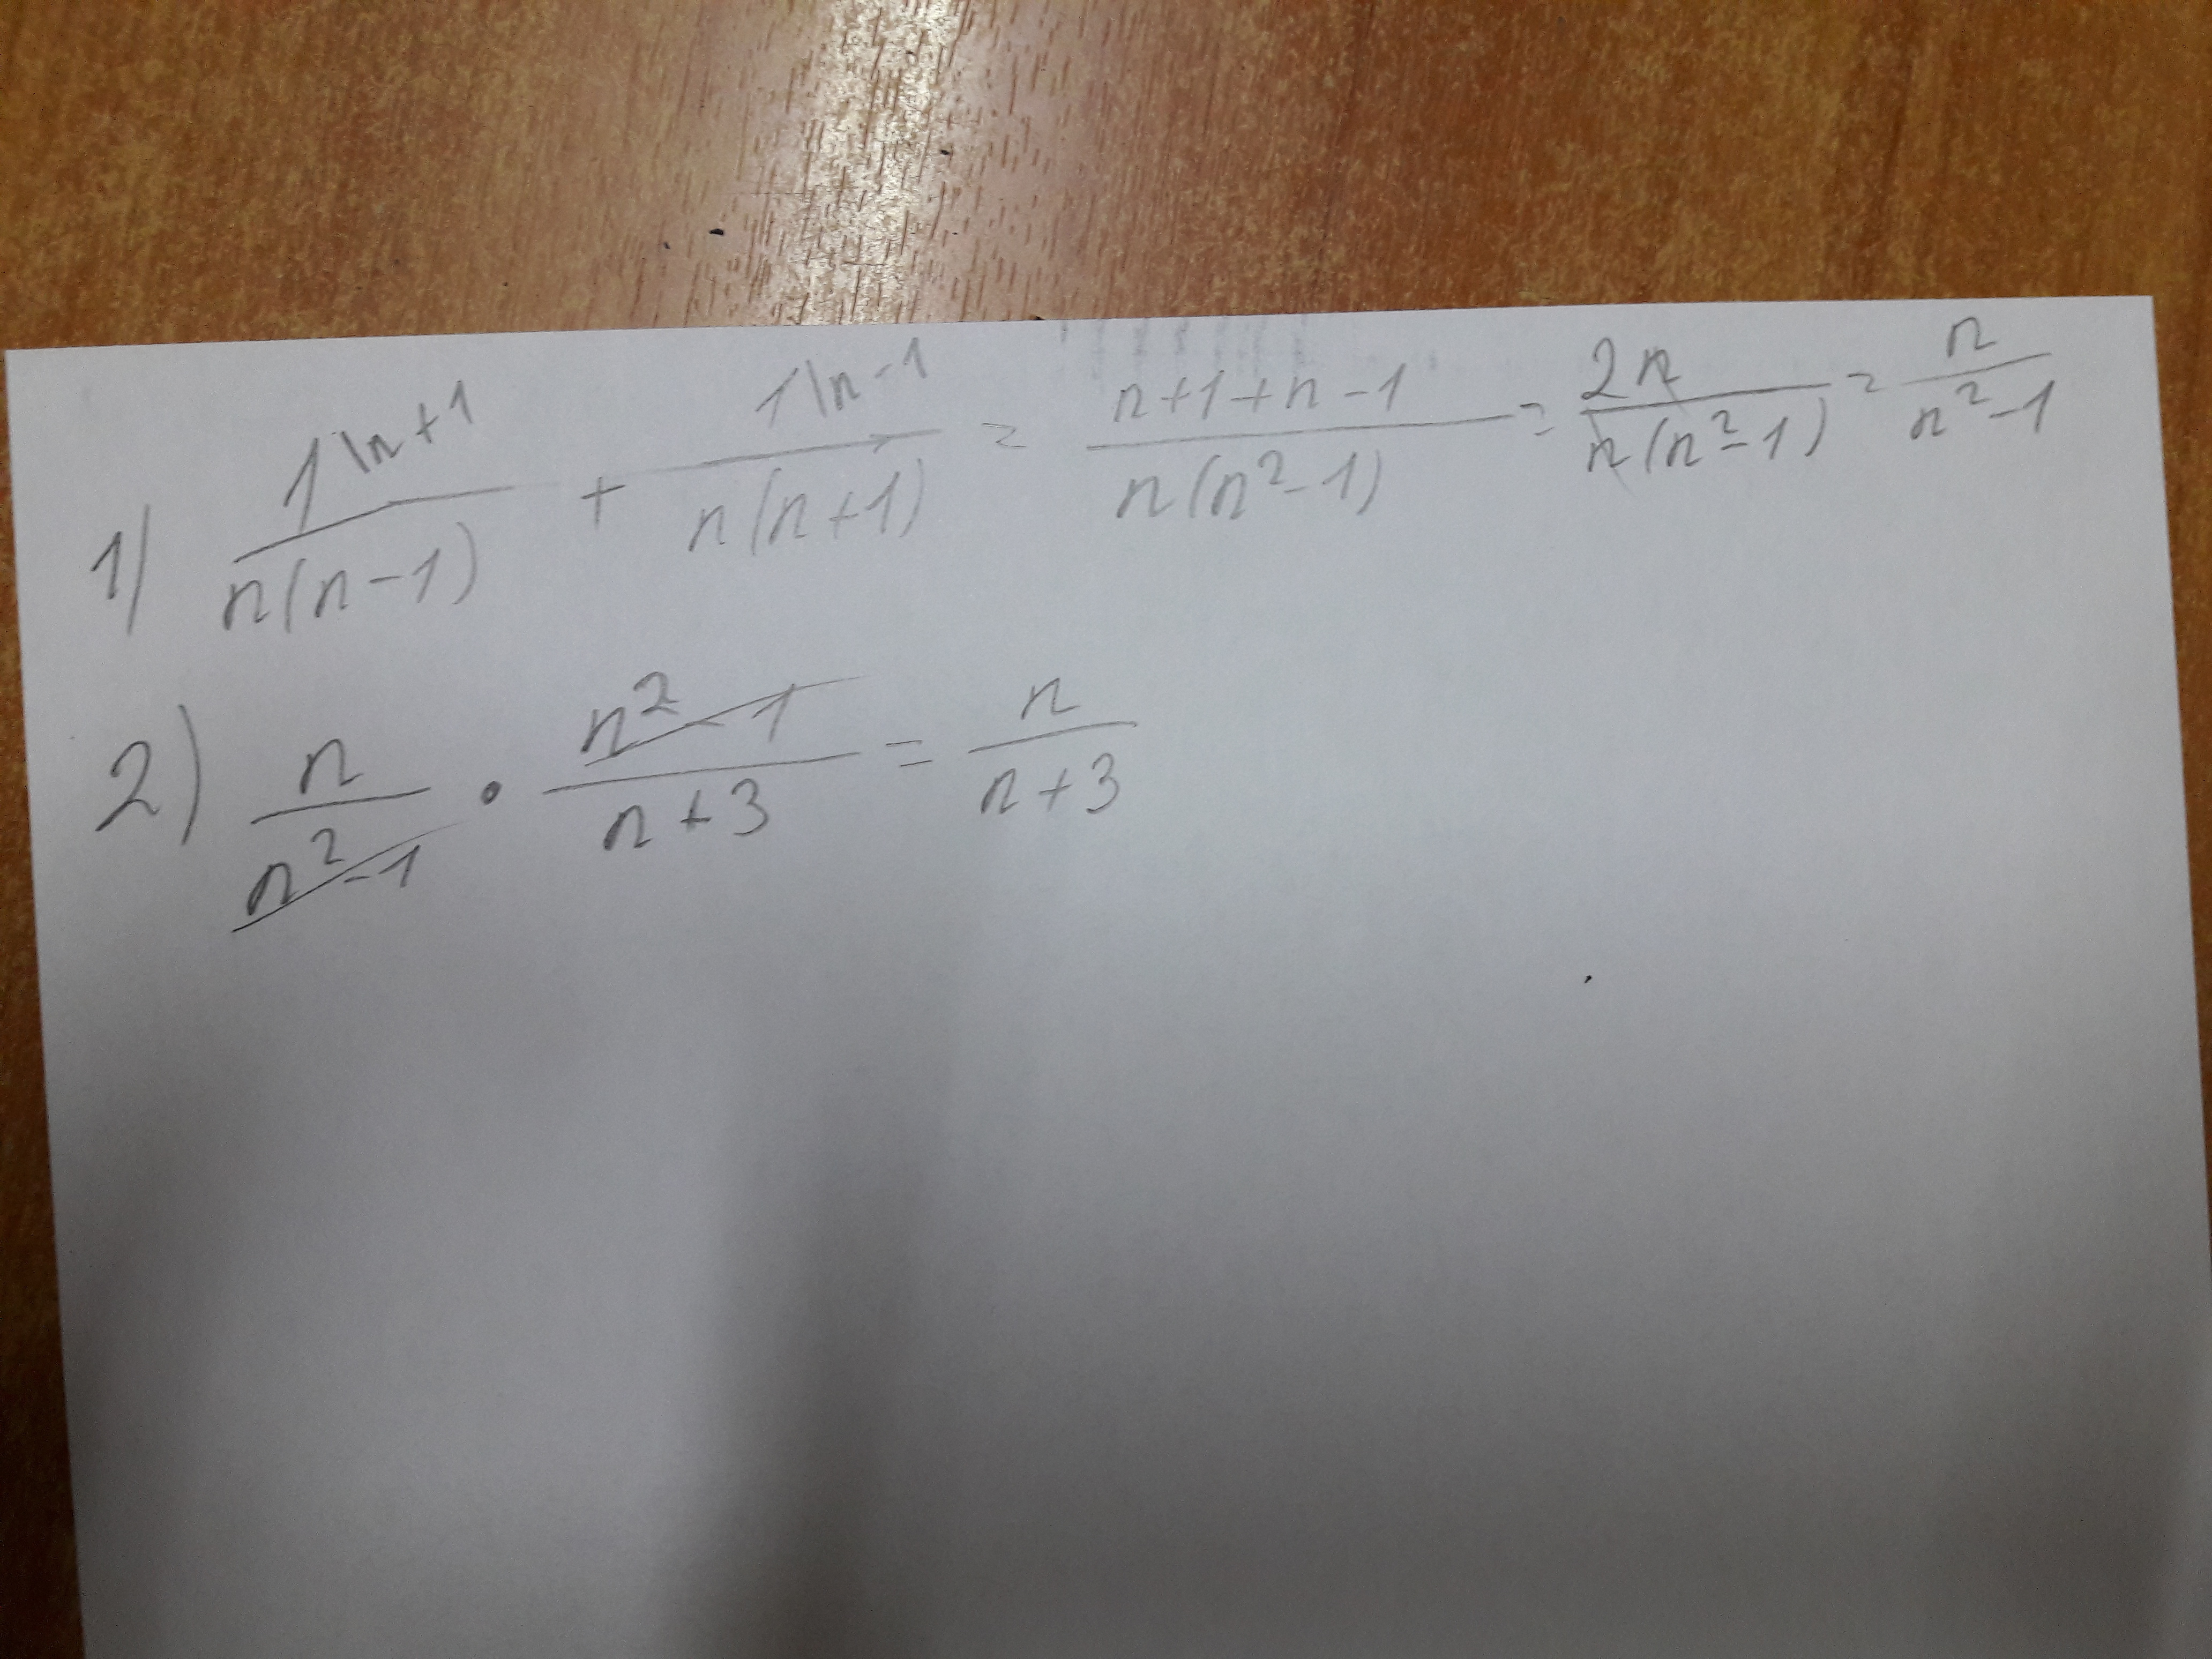 1) \frac{1 \backslash n+1}{n(n-1)} + \frac{1 \backslash n-1}{n(n+1)} = \frac{n+1+n-1}{n(n^2-1)} = \frac{2n}{n(n^2-1)} = \frac{n}{n^2-1}
2) \frac{n}{n^2-1} \cdot \frac{n^2-1}{n+3} = \frac{n}{n+3}